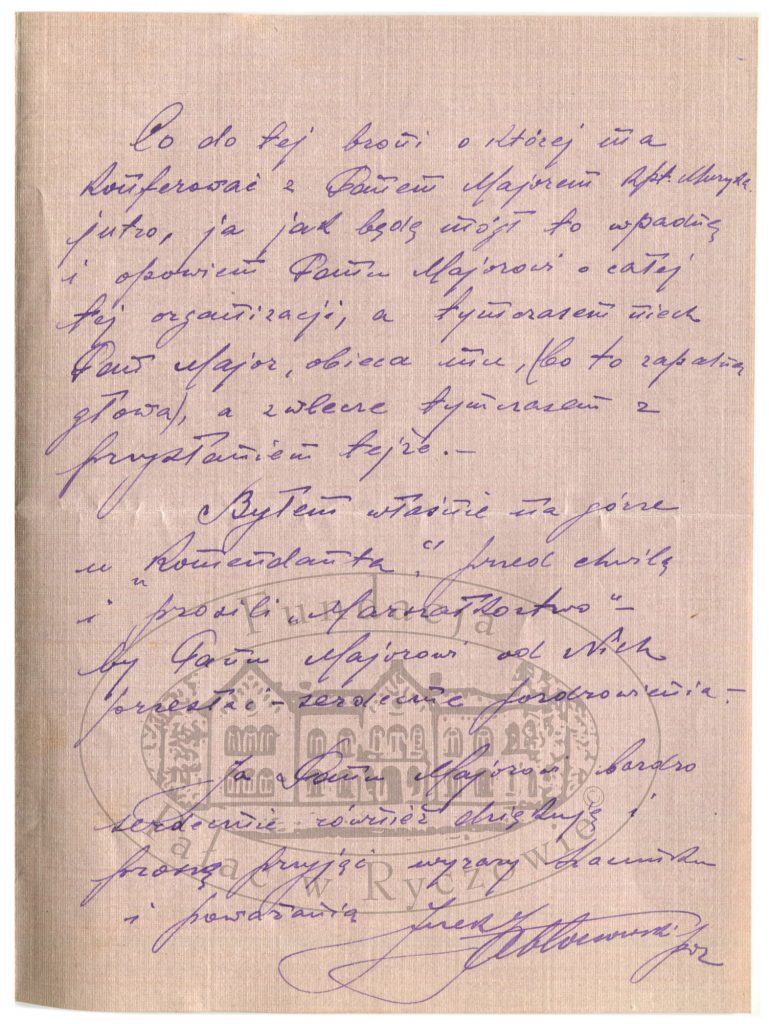 Co do tej broni o której ma
Konferować z Panem Majorem Kpt. Muryka
jutro, ja jak będę mógł to wpadnę
i opowiem Panu Majorowi o całej
tej organizacji, a tymczasem niech
Pan Major, obieca mu, (bo to zapalna
głowa), a zwlecze tymczasem z
przysłaniem tejże. —
Byłem właśnie na górze
u "Komendanta" przed chwilą
i prosili „Marszałkostwo" –
by Panu Majorowi od Nich
przesłać – serdeczne pozdrowienia. –
Ja Panu Majorowi bardzo
serdecznie również dziękuję i
proszę przyjąć wyrazy szacunku
i poważania
Jurek Jabłonowski
Fundacja
Pałac w Ryczowie ©